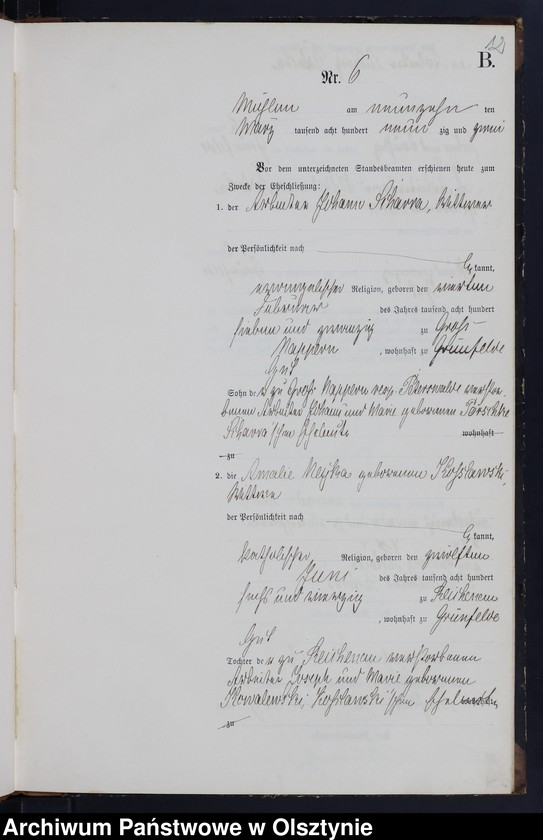 12
B.
Nr. 6
Mühlen am neunzehn ten
März tausend acht hundert neun zig und zwei
Vor dem unterzeichneten Standesbeamten erschienen heute zum
Zwecke der Eheschließung:
1. der Arbeiter Johann Skarra, Wittwer
der Persönlichkeit nach
kannt,
evangelischer Religion, geboren den vierten
Februar des Jahres tausend acht hundert
sieben und zwanzig zu Groß-
Nappern, wohnhaft zu Grünfelde
Gut
Sohn der zu Groß Nappern resp. Peterswalde verstor-
benen Arbeiter Johann und Marie geborenen
Skarra'schen Eheleute wohnhaft
zu
2. die Amalie geborenen Koslowski,
Wittwe
der Persönlichkeit nach
kannt,
katholischer Religion, geboren den zwölften
Juni des Jahres tausend acht hundert
sechs und vierzig zu Reichenau
, wohnhaft zu Grünfelde
Gut
Tochter der zu Reichenau verstorbenen
Arbeiter Joseph und Marie geborenen
Kowalewski, Koslowski'schen Eheleute
zu
Archiwum Państwowe w Olsztynie